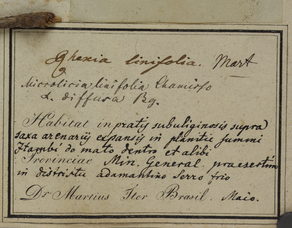 Rhexia linifolia. Mart
Microlicia linifolia Chamisso
L. diffusa Bg.
Habitat in pratis subuliginosis supra
saxa arenariis expansis in planitie summi
Itambé do mato dentro et alibi
Provinciae Min. General. praesertim
in districtu adamantino Serro frio
Dr Martius Iter Brasil. Maio.